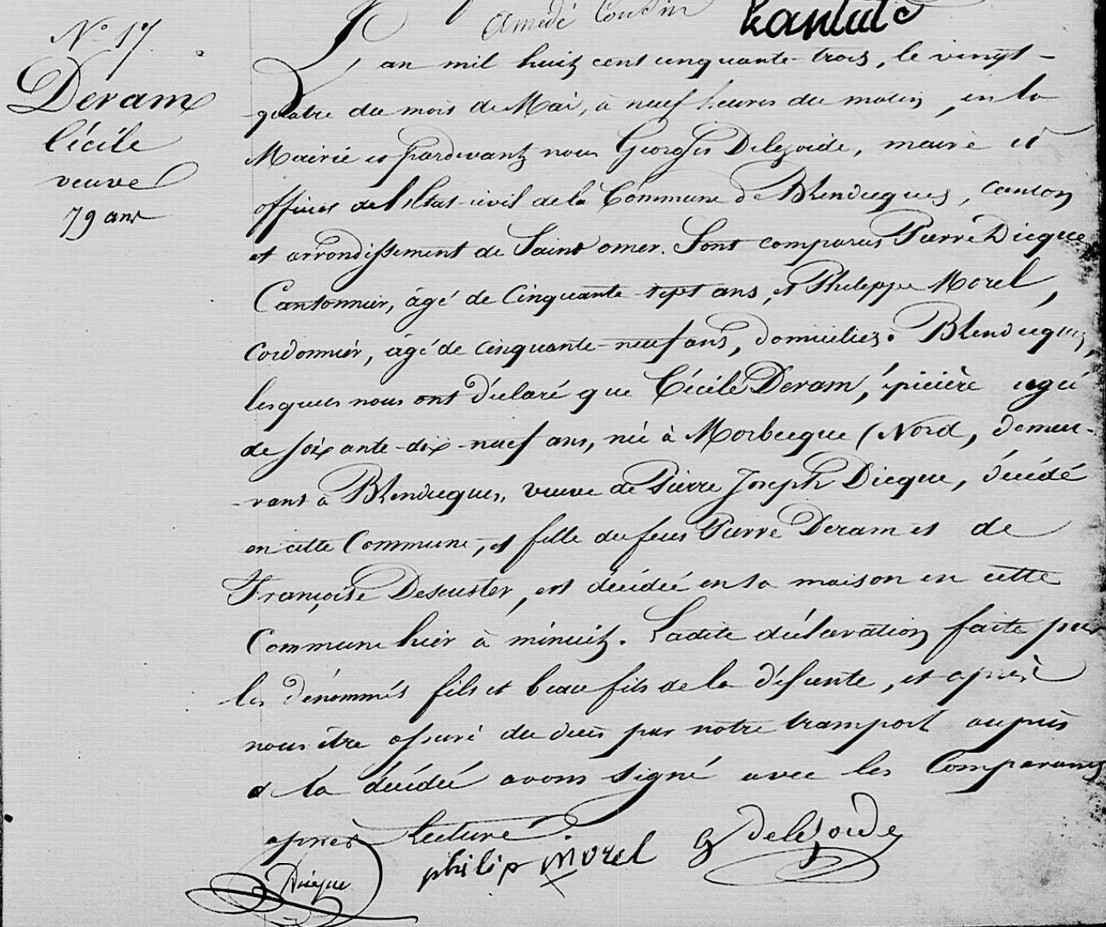 Amédé Cousin
N° 17.
Deram
Cécile
veuve
79 ans
L'an mil huit cent cinquante-trois, le vingt-
quatre du mois de Mai, à neuf heures du matin, en la
Mairie et pardevant nous Georges Delezoide, maire et
officier de l'Etat-civil de la Commune de Blendecques, canton
et arrondissement de Saint omer. Sont comparus Pierre Dieque
Cantonnier, âgé de Cinquante-sept ans, et Philippe Morel,
Cordonnier, âgé de cinquante-neuf ans, domiciliés à Blendecques,
lesquels nous ont déclaré que Cécile Deram, épicière agée
de soixante-dix-neuf ans, née à Morbecque (Nord, demeu-
-rant à Blendecques, veuve de Pierre Joseph Dieque, décédé
en cette Commune, et fille de feus Pierre Deram et de
Françoise Descuster, est décédée en sa maison en cette
Commune hier à minuit. Ladite déclaration faite par
les dénommés fils et beau fils de la défunte, et après
nous être assuré du décès par notre transport auprès
de la décédée avons signé avec les Comparants
après lecture
Dieque philip morel G Delezoide